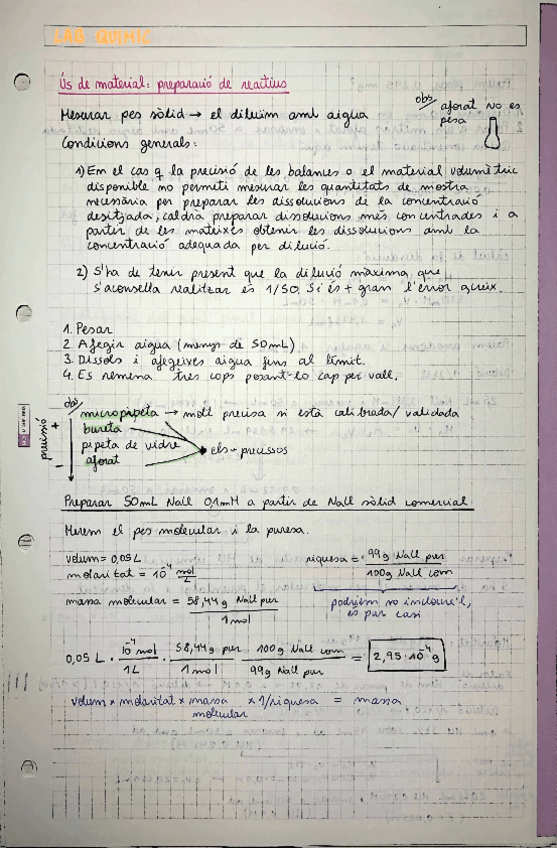 LAB QUIMIC
Ús de material: preparació de reactius
obs/ aforat no es
pesa
Mesurar pes sòlid → el diluïm amb aigua
Condicions generals:
1) Em el cas q la precisió de les balances o el material volumètric
disponible no permeti mesurar les quantitats de mostra
necessària per preparar les dissolucions de la concentració
desitjada, caldrà preparar dissolucions més concentrades i a
partir de les mateixes obtenir les dissolucions amb la
concentració adequada per dilució.
2) S'ha de tenir present que la dilució màxima que
s'aconsella realitzar és 1/50. Si és + gran l'error creix.
1. Pesar
2. Afegir aigua (menys de 50mL)
3. Dissols i afegeixes aigua fins al límit.
4. Es remena tres cops posant-lo cap per vall.
obs/
micropipeta → molt precisa si està calibrada/validada
bureta
pipeta de vidre
aforat
els + precissos
precisió
+
-
Preparar 50mL NaCl 0,1mM a partir de NaCl sòlid comercial
Mirem el pes molecular i la puresa.
volum = 0,05 L
molaritat = 10⁻⁴ mol/L
riquesa = 99g NaCl pur / 100g NaCl com
massa molecular = 58,44g NaCl pur / 1 mol
podríem no incloure'l,
és par casi
0,05 L · 10⁻⁴ mol / 1L · 58,44g pur / 1 mol · 100g NaCl com / 99g NaCl pur = 2,95·10⁻⁴ g
volum × molaritat × massa molecular × 1/riquesa = massa